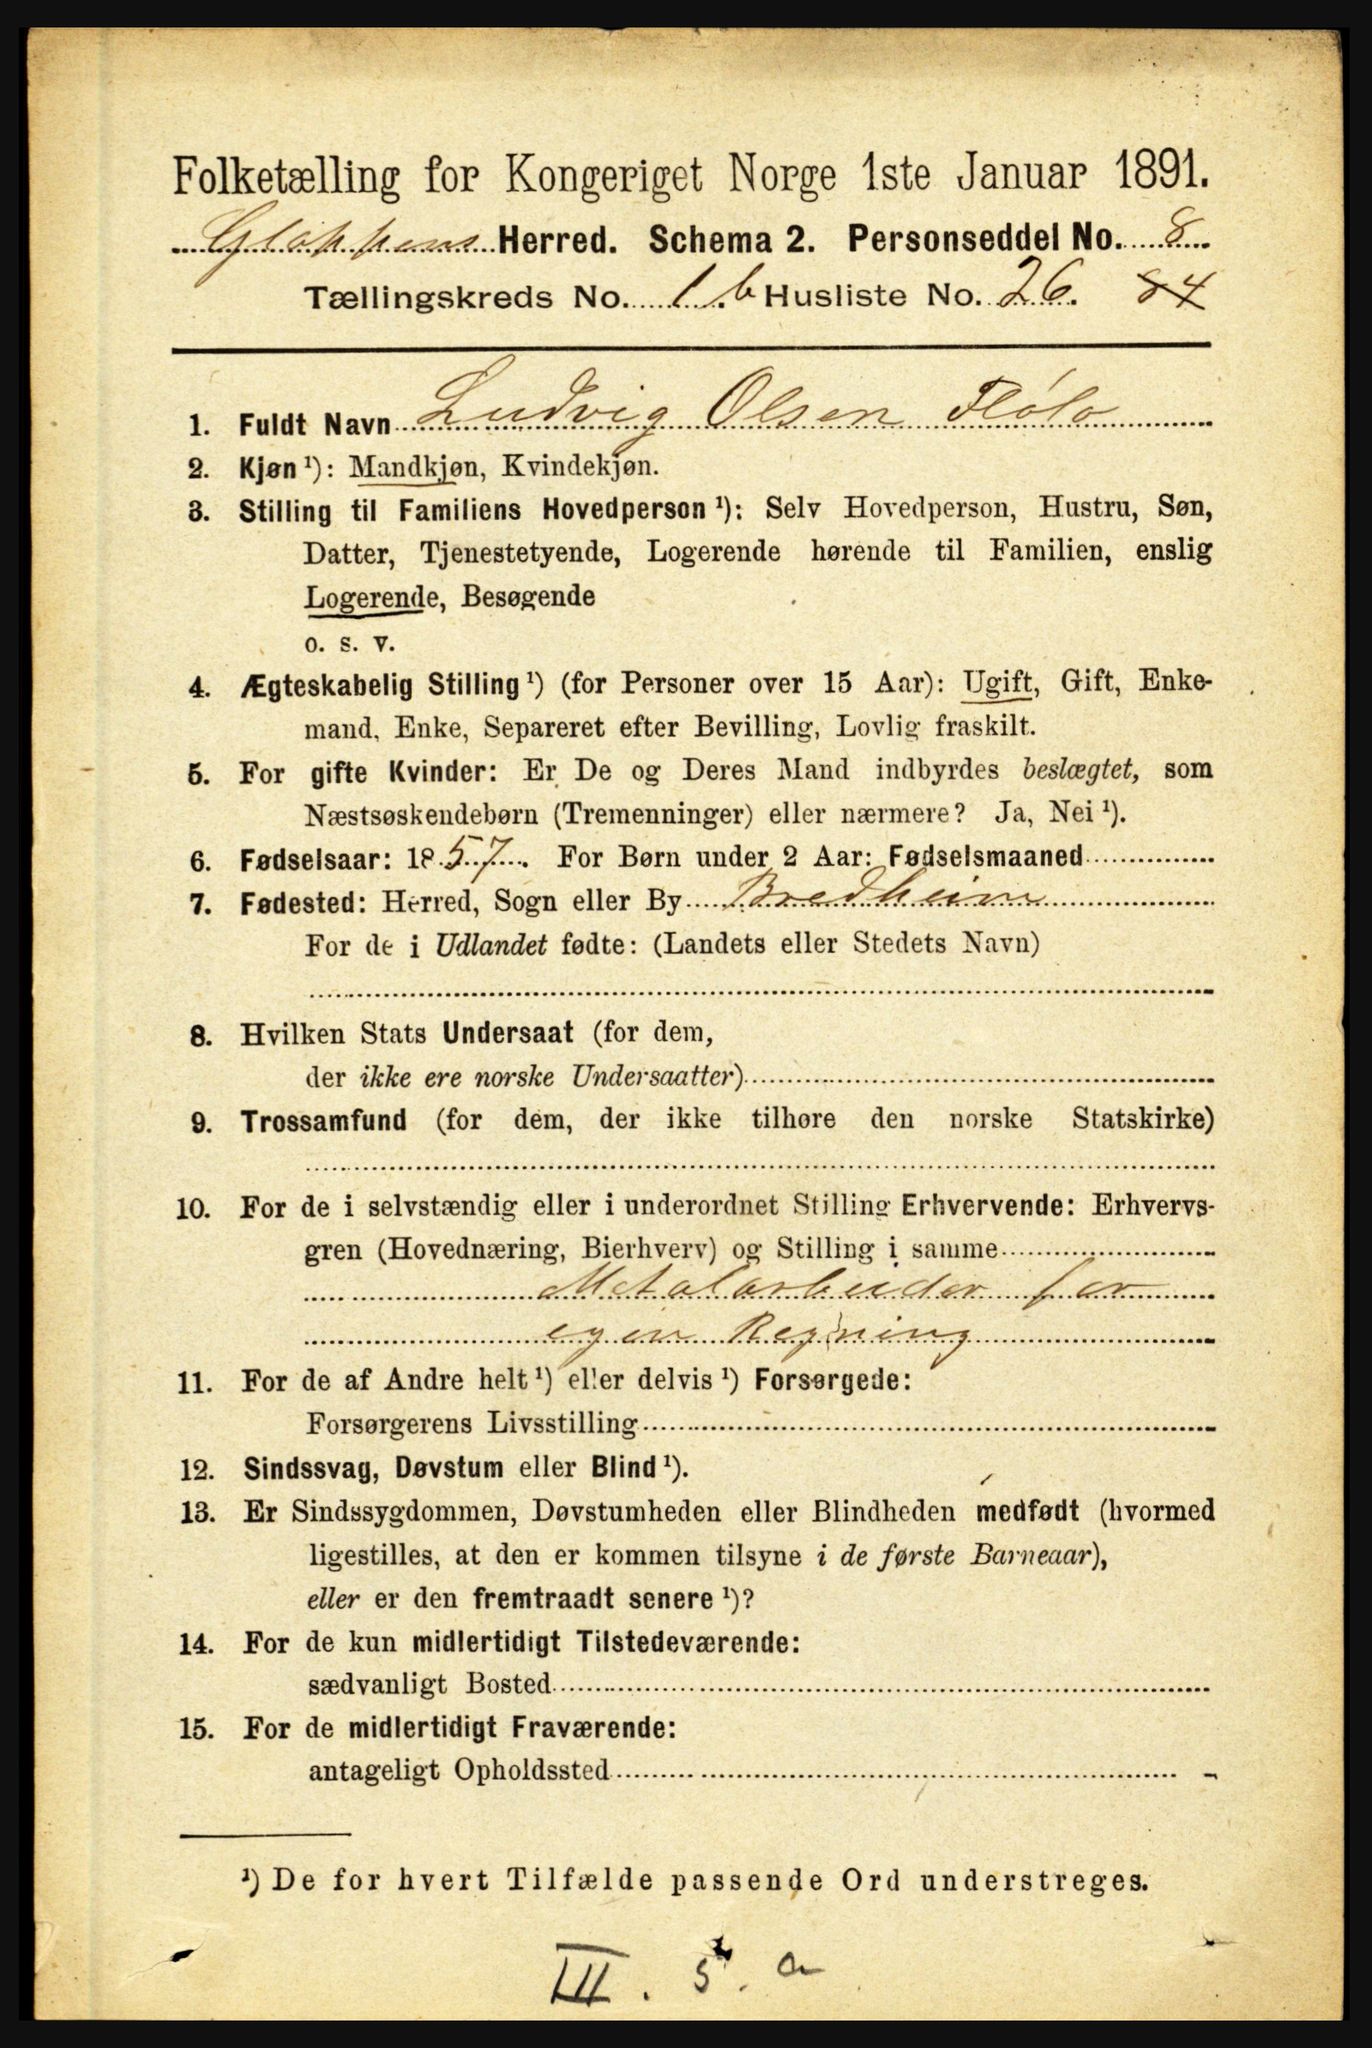 Folketælling for Kongeriget Norge 1ste Januar 1891.
Gloppens Herred. Schema 2. Personseddel No. 8
Tællingskreds No. 1.b Husliste No. 26. 84
1. Fuldt Navn Ludvig Olsen Flólo
2. Kjøn ¹): Mandkjøn, Kvindekjøn.
3. Stilling til Familiens Hovedperson ¹): Selv Hovedperson, Hustru, Søn,
Datter, Tjenestetyende, Logerende hørende til Familien, enslig
Logerende, Besøgende
o. s. v.
4. Ægteskabelig Stilling ¹) (for Personer over 15 Aar): Ugift, Gift, Enke-
mand, Enke, Separeret efter Bevilling, Lovlig fraskilt.
5. For gifte Kvinder: Er De og Deres Mand indbyrdes beslægtet, som
Næstsøskendebørn (Tremenninger) eller nærmere? Ja, Nei ¹).
6. Fødselsaar: 1857. For Børn under 2 Aar: Fødselsmaaned
7. Fødested: Herred, Sogn eller By Bredheim
For de i Udlandet fødte: (Landets eller Stedets Navn)
8. Hvilken Stats Undersaat (for dem,
der ikke ere norske Undersaatter)
9. Trossamfund (for dem, der ikke tilhøre den norske Statskirke)
10. For de i selvstændig eller i underordnet Stilling Erhvervende: Erhvervs-
gren (Hovednæring, Bierhverv) og Stilling i samme
Metalarbeider for
egen Regning
11. For de af Andre helt ¹) eller delvis ¹) Forsørgede:
Forsørgerens Livsstilling
12. Sindssvag, Døvstum eller Blind ¹).
13. Er Sindssygdommen, Døvstumheden eller Blindheden medfødt (hvormed
ligestilles, at den er kommen tilsyne i de første Barneaar),
eller er den fremtraadt senere ¹)?
14. For de kun midlertidigt Tilstedeværende:
sædvanligt Bosted
15. For de midlertidigt Fraværende:
antageligt Opholdssted
¹) De for hvert Tilfælde passende Ord understreges.
III. 5. a